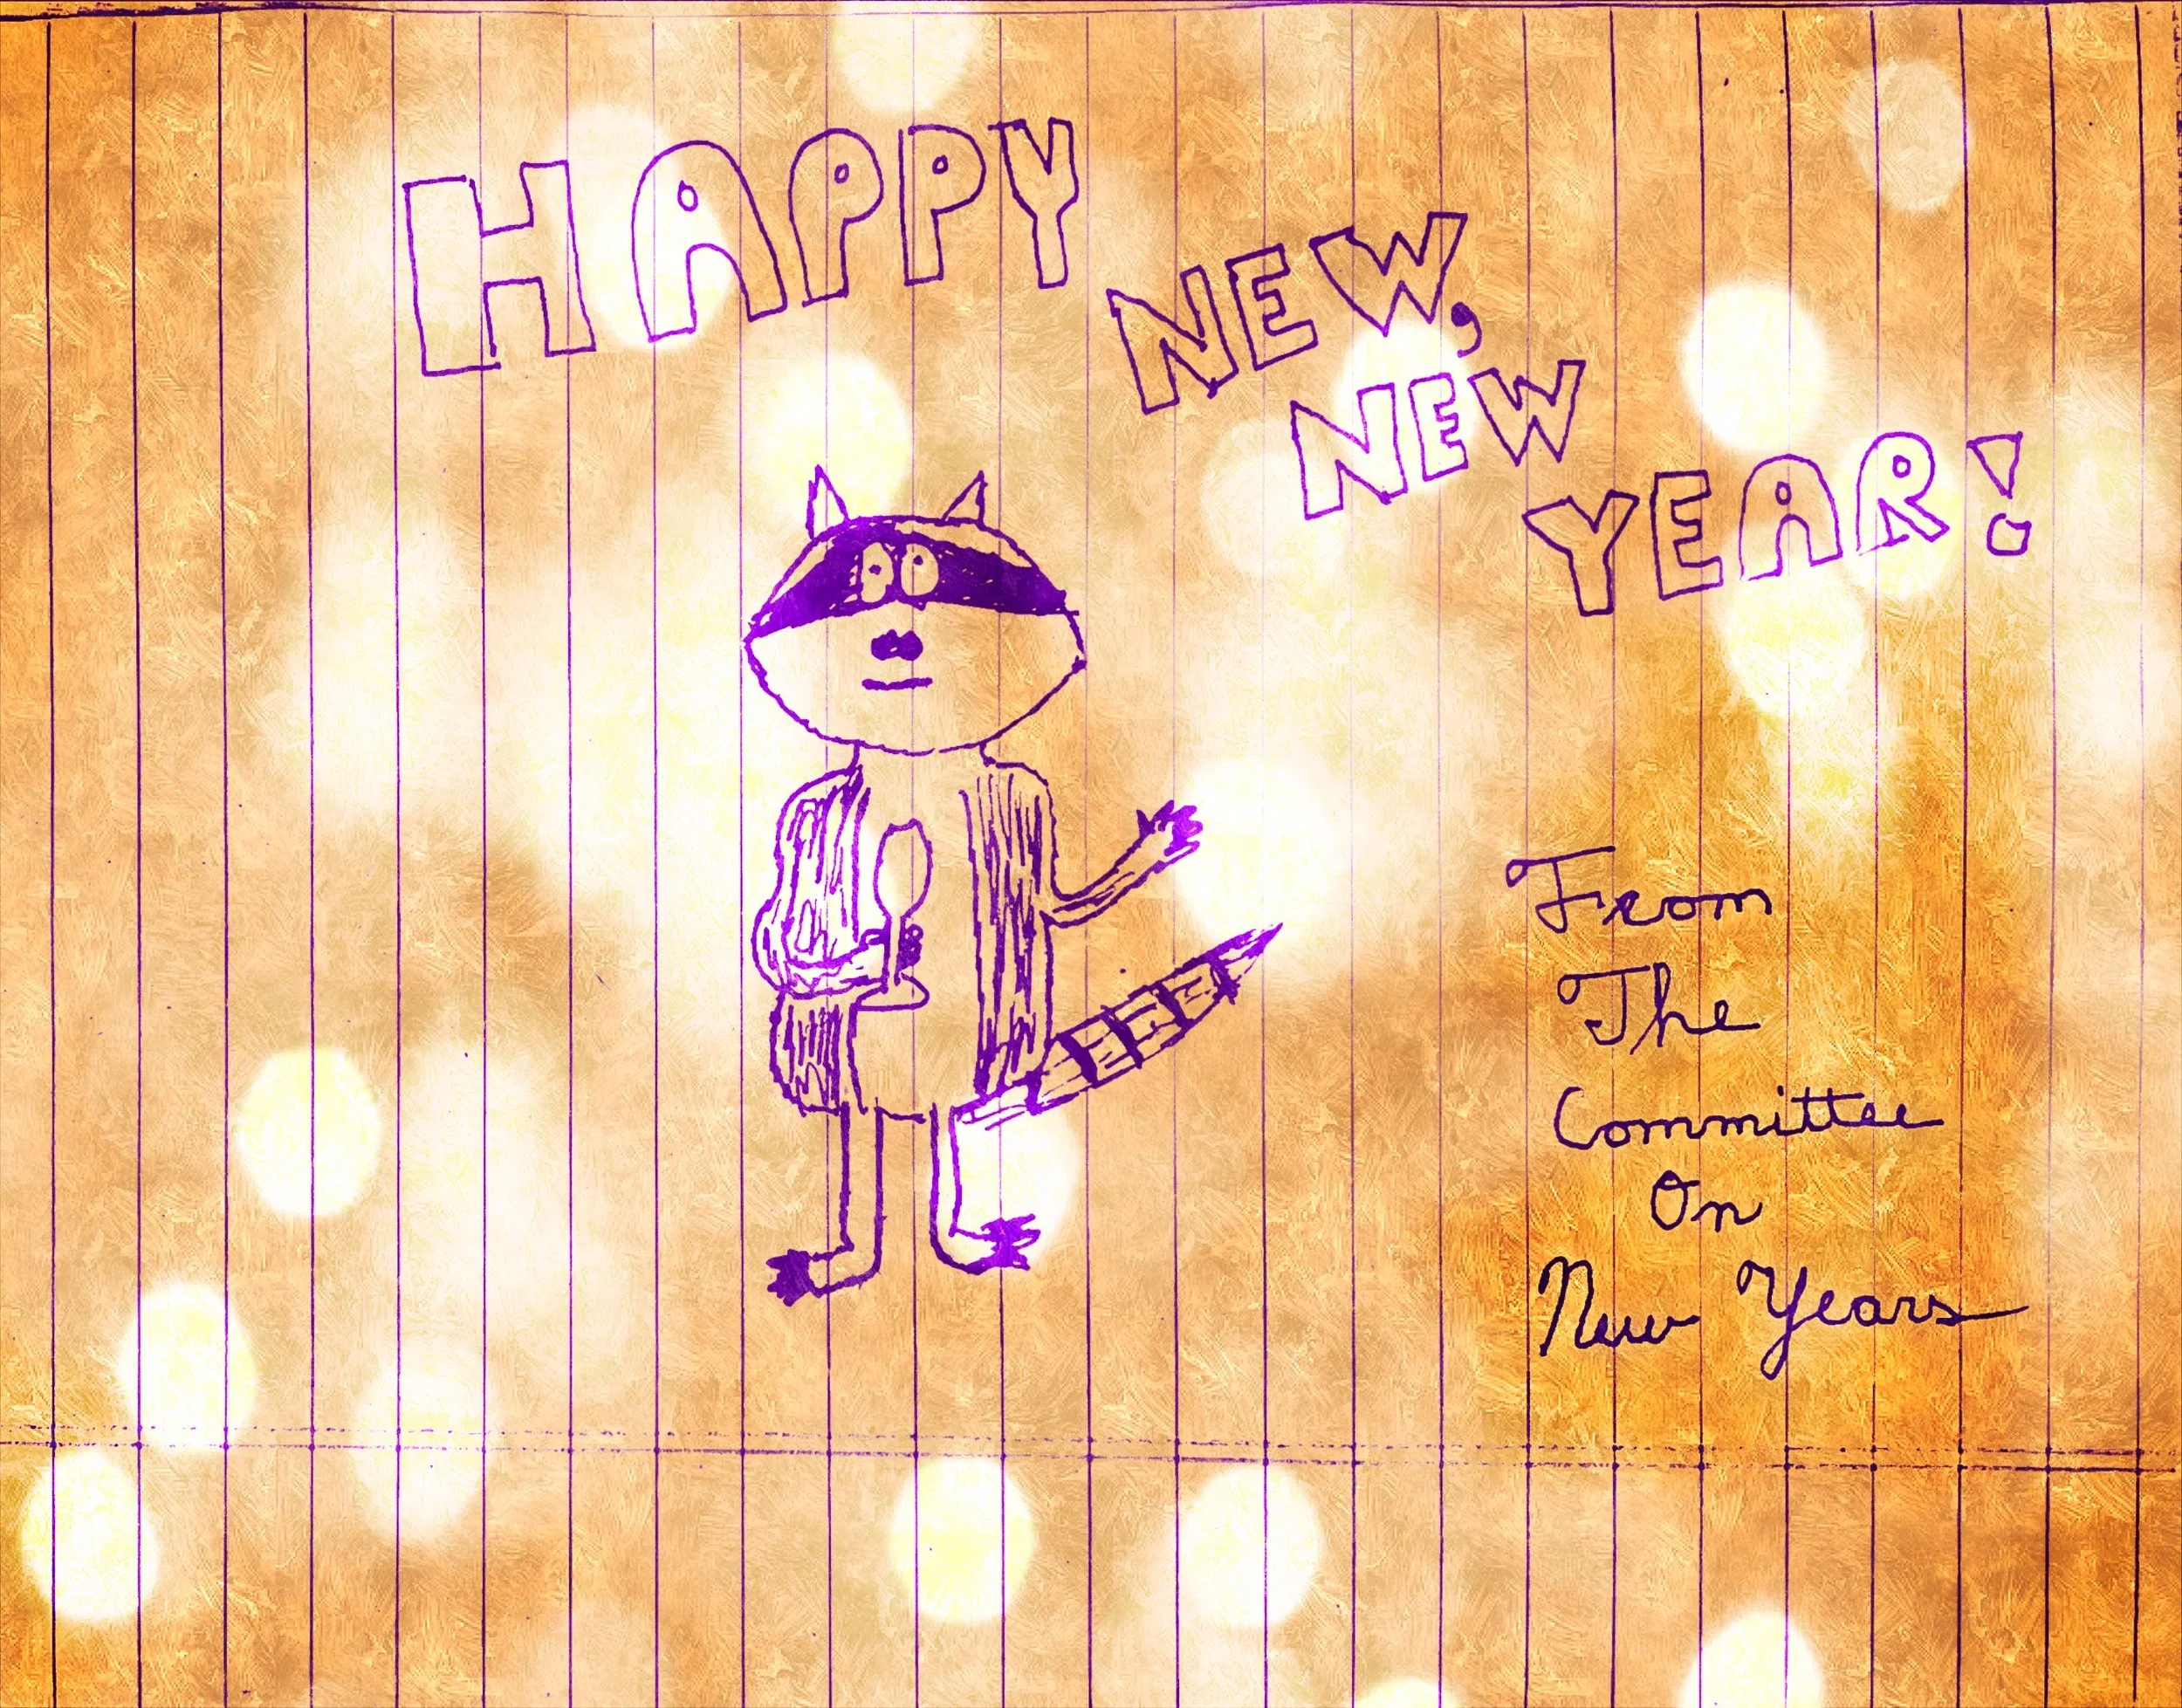 HAPPY
NEW,
NEW
YEAR!
From
The
Committee
On
New Years